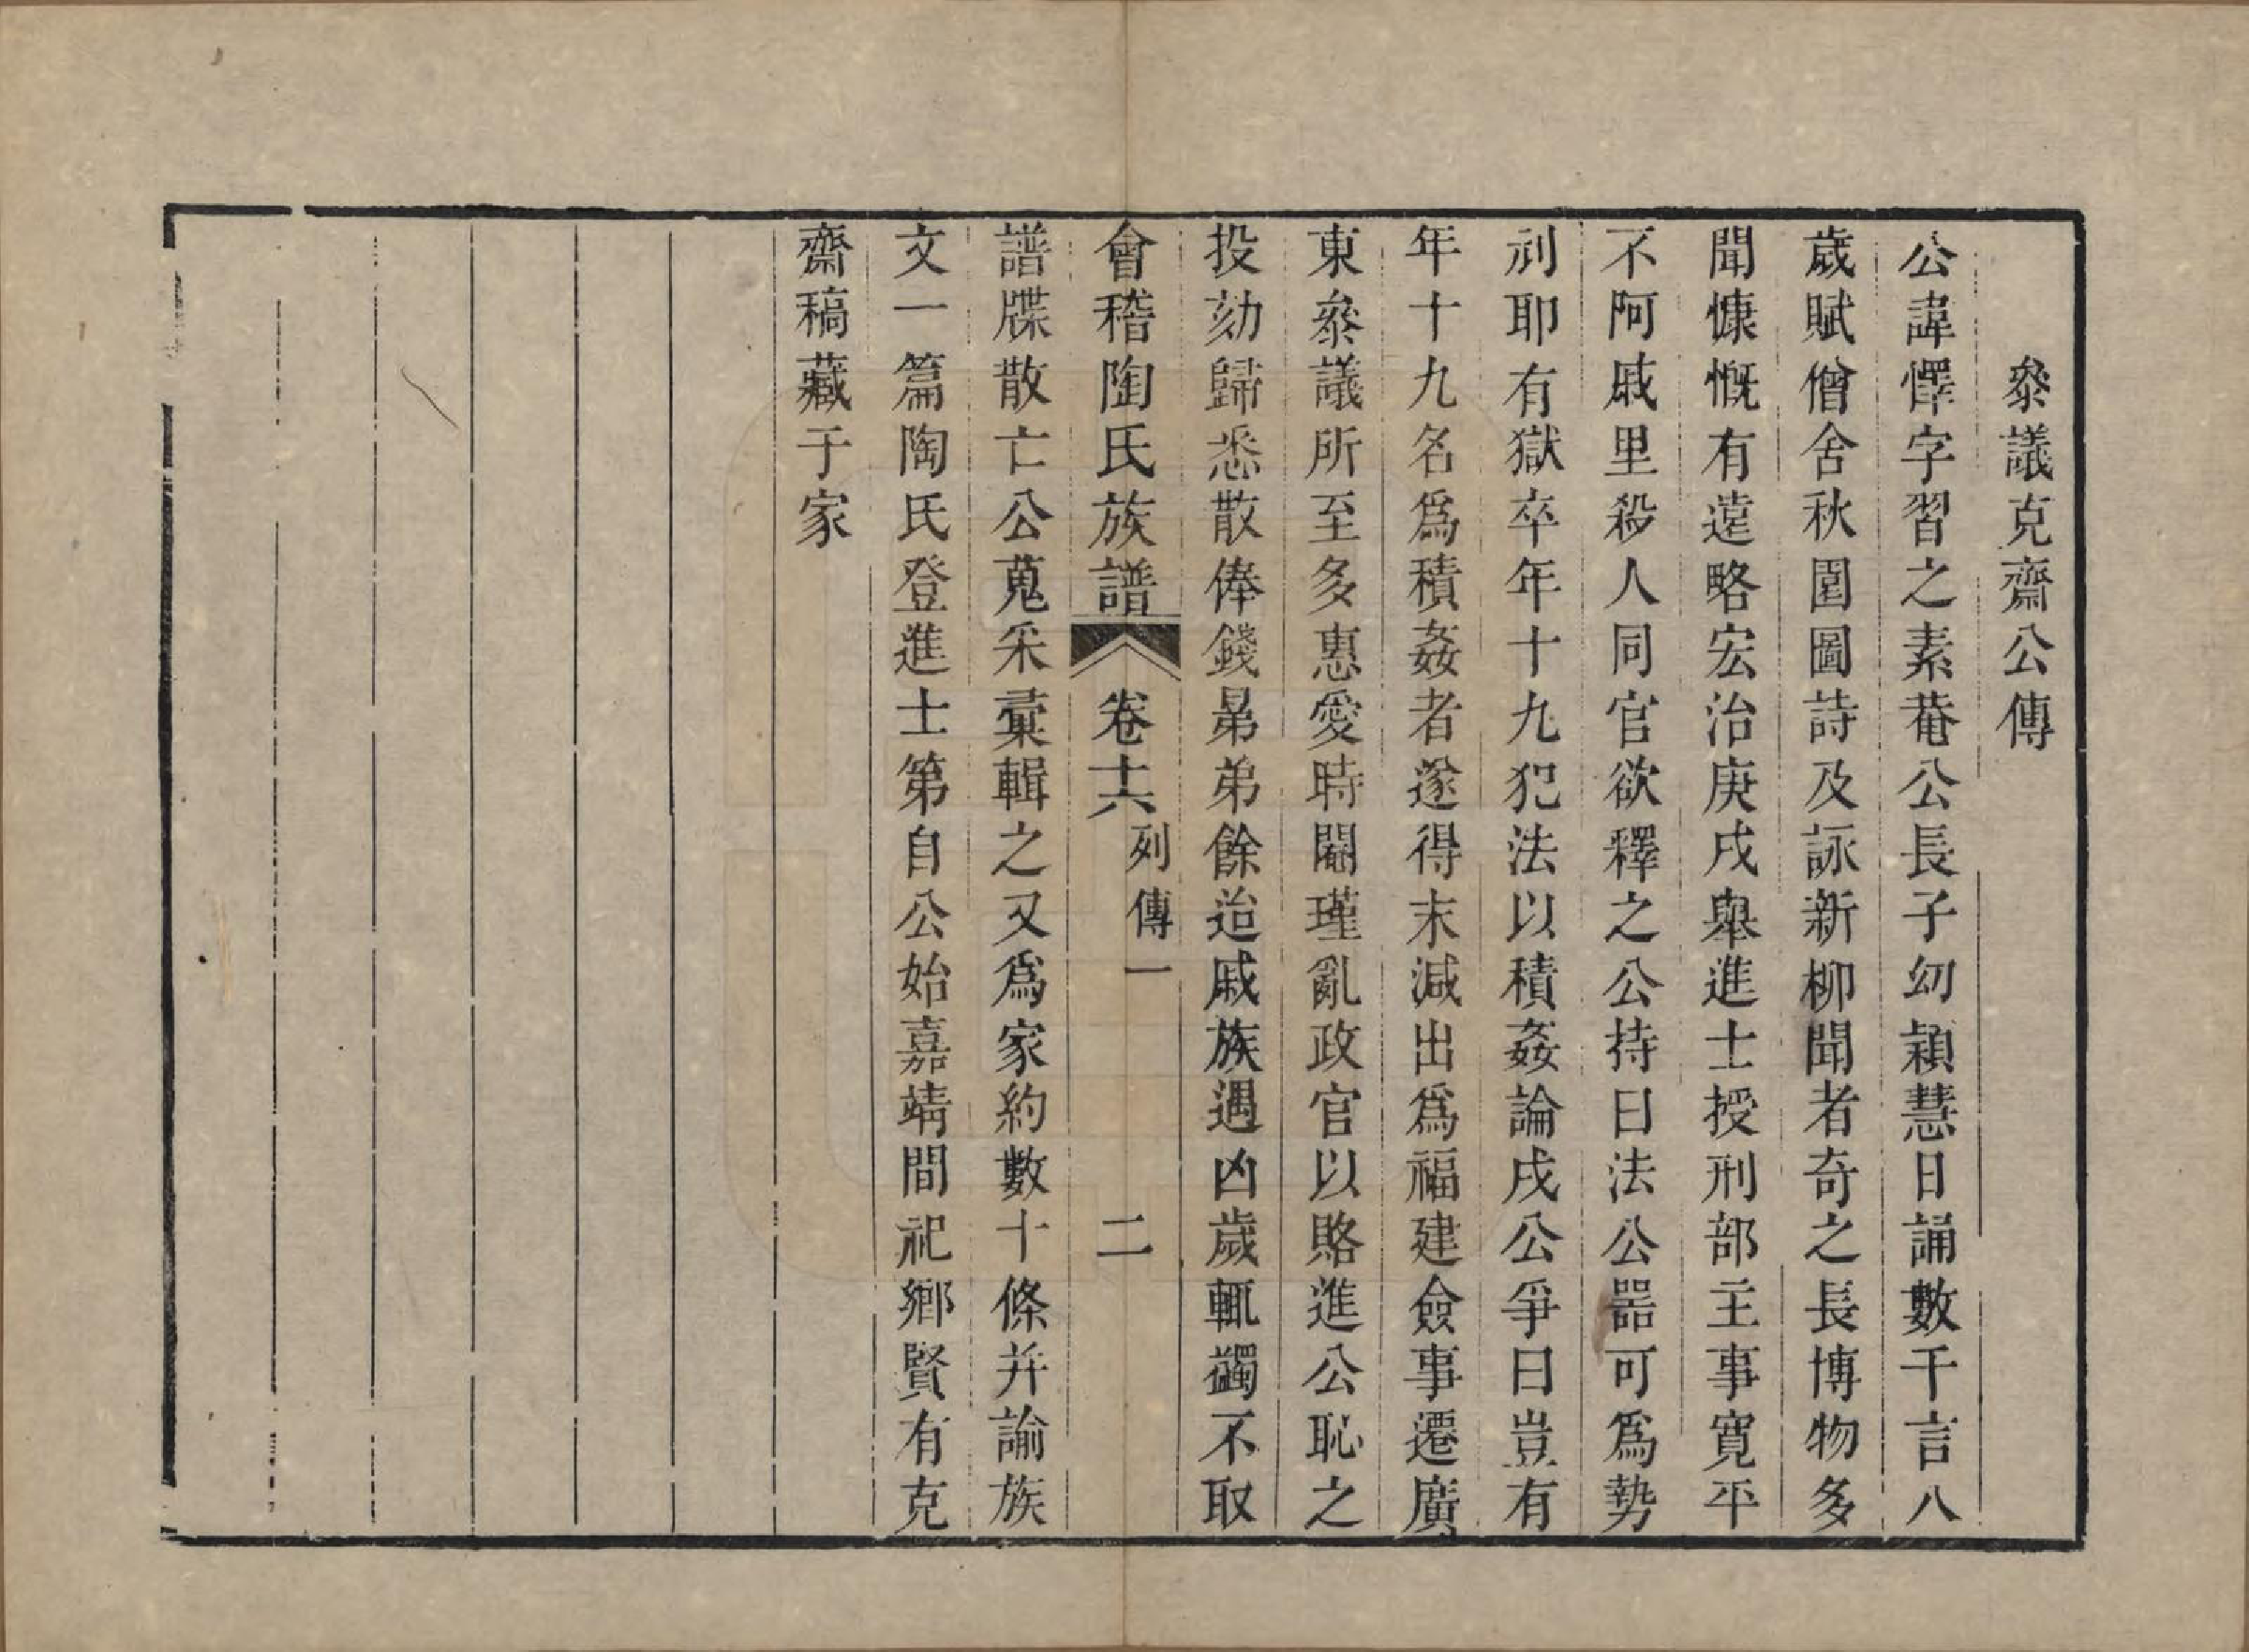 叅議克齋公傳
公諱懌字習之素菴公長子幼穎慧日誦數千言八
歲賦僧舍秋圍圖詩及詠新柳聞者奇之長博物多
聞慷慨有遠略宏治庚戌舉進士授刑部主事寬平
不阿戚里殺人同官欲釋之公持曰法公器可爲勢
利耶有獄卒年十九犯法以積姦論戍公爭曰豈有
年十九名爲積姦者遂得末減出爲福建僉事遷廣
東叅議所至多惠愛時閹瑾亂政官以賂進公恥之
投劾歸悉散俸錢昴弟餘迨戚族遇凶歲輒蠲不取
會稽陶氏族譜 卷十六 列傳一 二
譜牒散亡公蒐采彙輯之又爲家約數十條并諭族
文一篇陶氏登進士第自公始嘉靖間祀鄉賢有克
齋稿藏于家